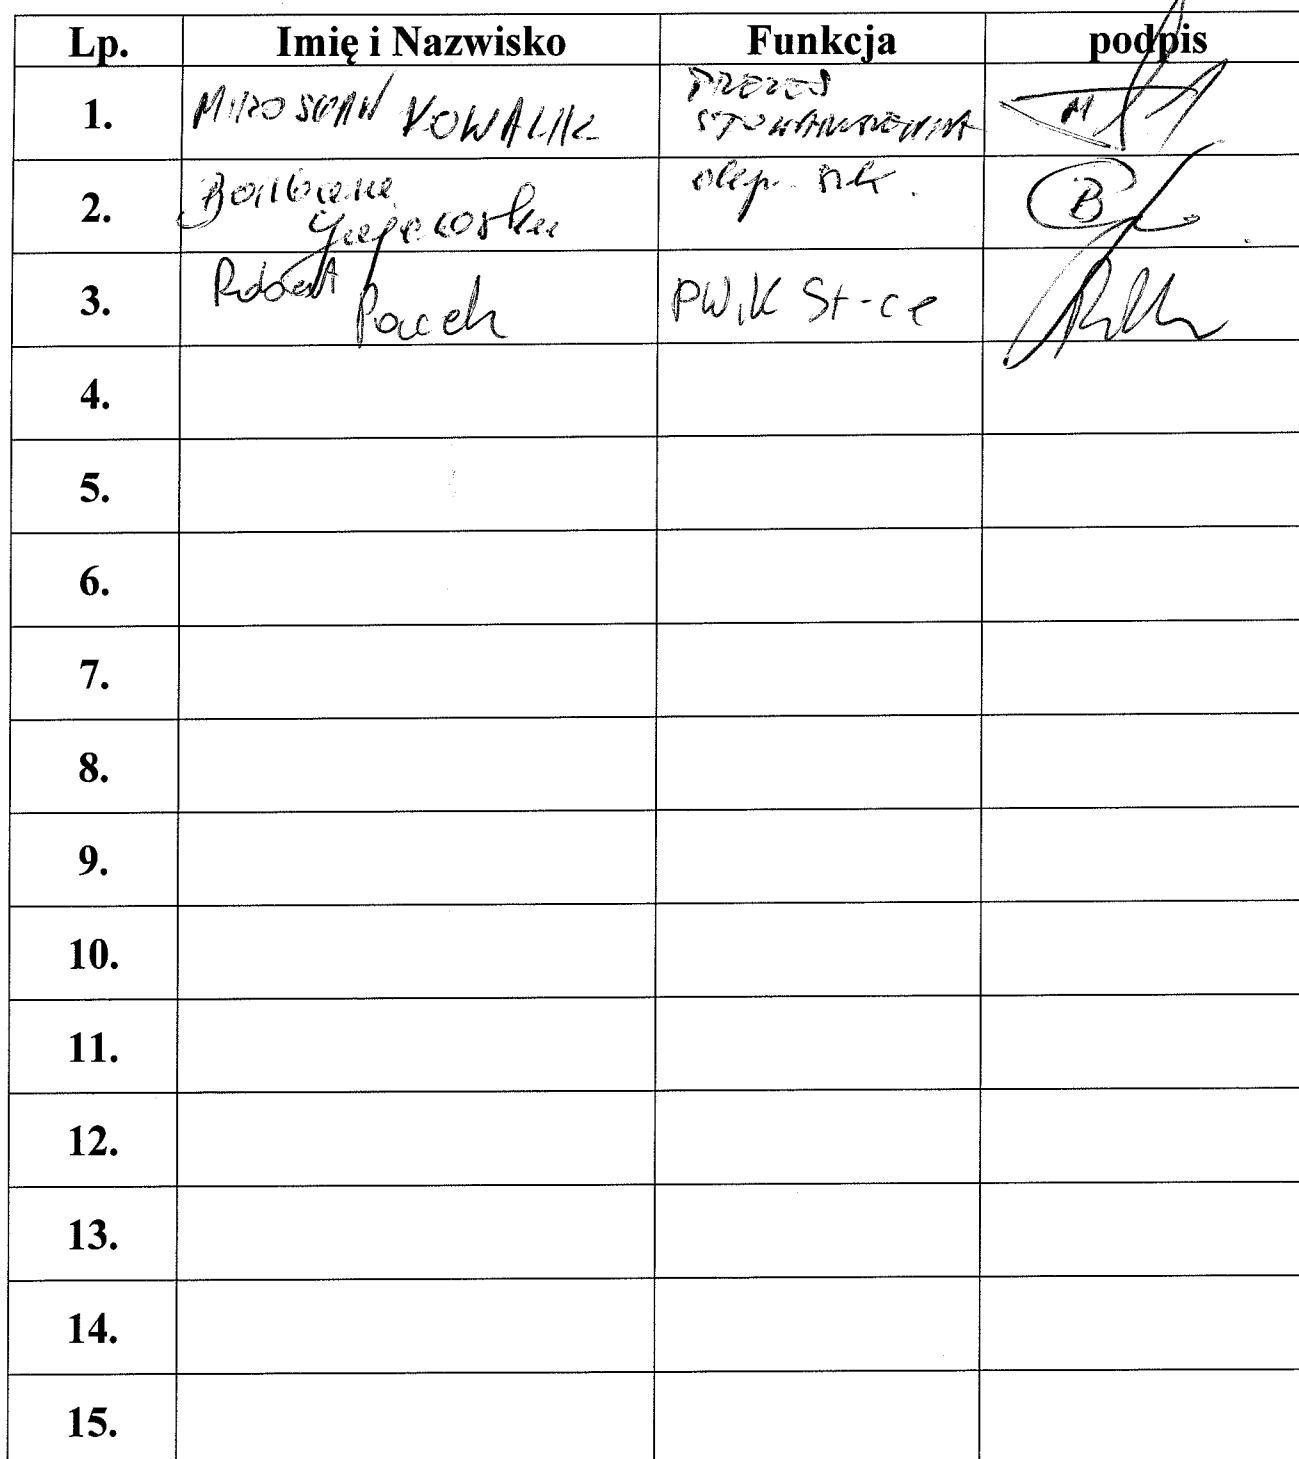 Lp. Imię i Nazwisko Funkcja podpis
1. MIROSŁAW KOWALIK PREZES
STOWARZYSZENIA M
2. Barbara B
3. Robert
Pacek PWiK St-ce
4.
5.
6.
7.
8.
9.
10.
11.
12.
13.
14.
15.